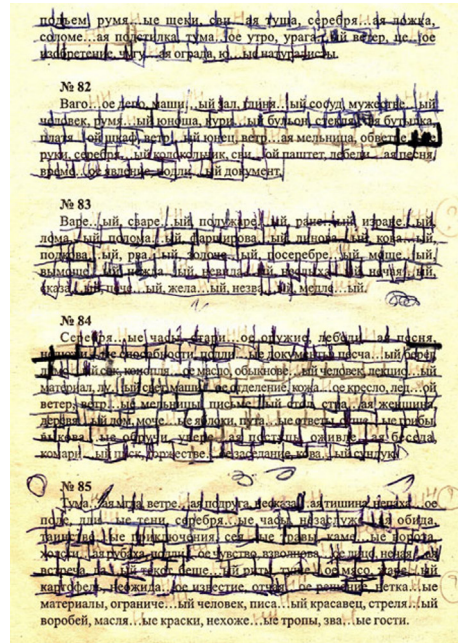 подъем, румя...ые щеки, сви...ая туша, серебря...ая ложка,
соломе...ая подстилка, тума...ое утро, урага...ый ветер, це...ое
изобретение, чугу...ая ограда, ю...ые натуралисты.
№ 82
Ваго...ое депо, маши...ый зал, глиня...ый сосуд, мужестве...ый
человек, румя...ый юноша, кури...ый бульон, стекля...ая бутылка,
платя...ой шкаф, ветр...ый юнец, ветр...ая мельница, обветре...ые
руки, серебря...ый колокольчик, сви...ой паштет, лебеди...ая песня,
време...ое явление, подли...ый документ.
№ 83
Варе...ый, сваре...ый, полужаре...ый, ране...ый, изране...ый,
лома...ый, полома...ый, фарширова...ый, линова...ый, кова...ый,
подкова...ый, рва...ый, золоче...ый, посеребре...ый, моще...ый,
вымоще...ый, нежда...ый, невида...ый, неслыха...ый, нечая...ый,
сказа...ый, пече...ый, жела...ый, незва...ый, медле...ый.
№ 84
Серебря...ые часы, стари...ое оружие, лебеди...ая песня,
ые способности, подли...ые документы, песча...ый берег,
сок, конопля...ое масло, обыкнове...ый человек, лекцио...ый
материал, лу...ый свет, маши...ое отделение, кожа...ое кресло, лед...ой
ветер, ветр...ые мельницы, письме...ый стол, стра...ая женщина,
деревя...ый дом, моче...ые яблоки, пута...ые ответы, суше...ые грибы,
ые обручи, увере...ая поступь, оживле...ая беседа,
комари...ый писк, торжестве...ое заседание, кова...ый сундук.
№ 85
Тума...ая мгла, ветре...ая подруга, несказа...ая тишина, непаха...ое
поле, дли...ые тени, серебря...ые часы, незаслуже...ая обида,
таинстве...ые приключения, сея...ые травы, каме...ые ворота,
холсти...ая рубаха, подли...ое чувство, взволнова...ое лицо, нежда...ая
встреча, да...ый текст, беше...ый ритм, туше...ое мясо, жаре...ый
картофель, неожида...ое известие, отчая...ое решение, нетка...ые
материалы, ограниче...ый человек, писа...ый красавец, стреля...ый
воробей, масля...ые краски, нехоже...ые тропы, зва...ые гости.